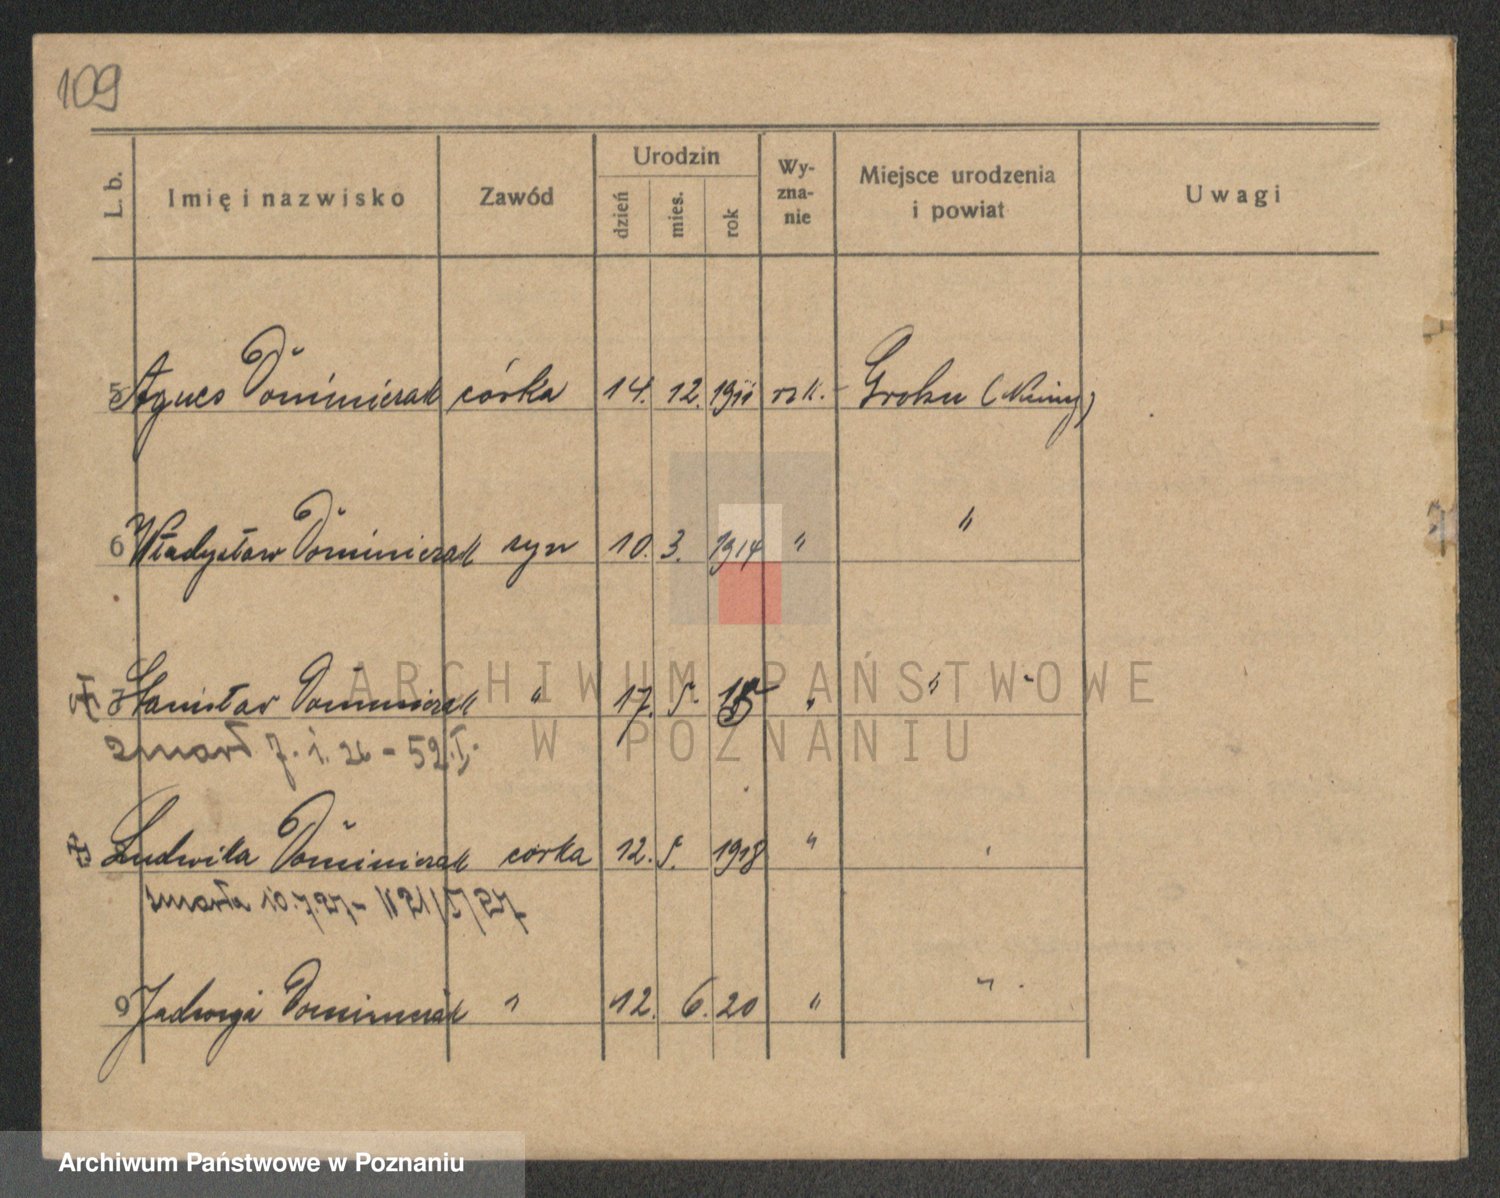 109
L. b.
Imię i nazwisko
Zawód
Urodzin
dzień
mies.
rok
Wy-
zna-
nie
Miejsce urodzenia
i powiat
Uwagi
5 Agnes Dominiczak córka 14. 12. 1911 rzk. Groku (
6 Władysław Dominiczak syn 10. 3. 1914 " "
7 Stanisław Dominiczak " 17. 5. 15 " "
zmarł 7. 1. 26 - 52. I.
Ludwika Dominiczak córka 12. 5. 1918 "
zmarła 10.7.27-
9 Jadwiga Dominiczak " 12. 6. 20 " "
ARCHIWUM PAŃSTWOWE
W POZNANIU
Archiwum Państwowe w Poznaniu